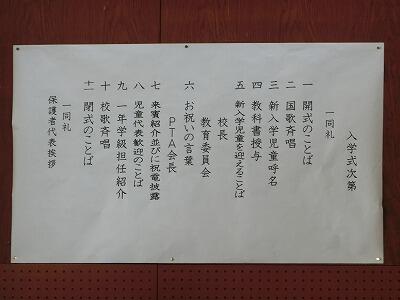 入学式次第
一同礼
一 開式のことば
二 国歌斉唱
三 新入学児童呼名
四 教科書授与
五 新入学児童を迎えることば
校長
教育委員会
六 お祝いの言葉
PTA会長
七 来賓紹介並びに祝電披露
八 児童代表歓迎のことば
九 一年学級担任紹介
十 校歌斉唱
十一 閉式のことば
一同礼
保護者代表挨拶